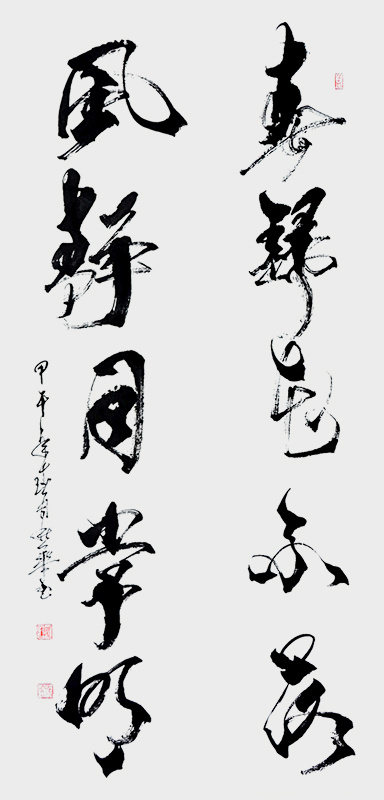 春歸花不落
風靜月常明
甲午